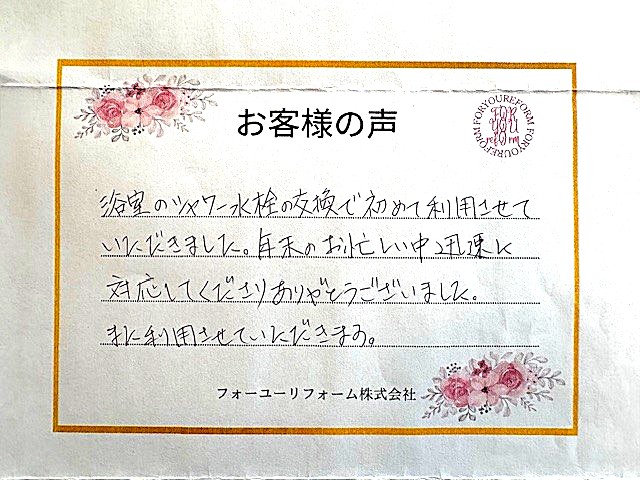 お客様の声
FORYOUREFORM FORYOUREFORM
FOR
YOU
reform
浴室のシャワー水栓の交換で初めて利用させて
いただきました。年末のお忙しい中迅速に
対応してくださりありがとうございました。
また利用させていただきます。
フォーユーリフォーム株式会社